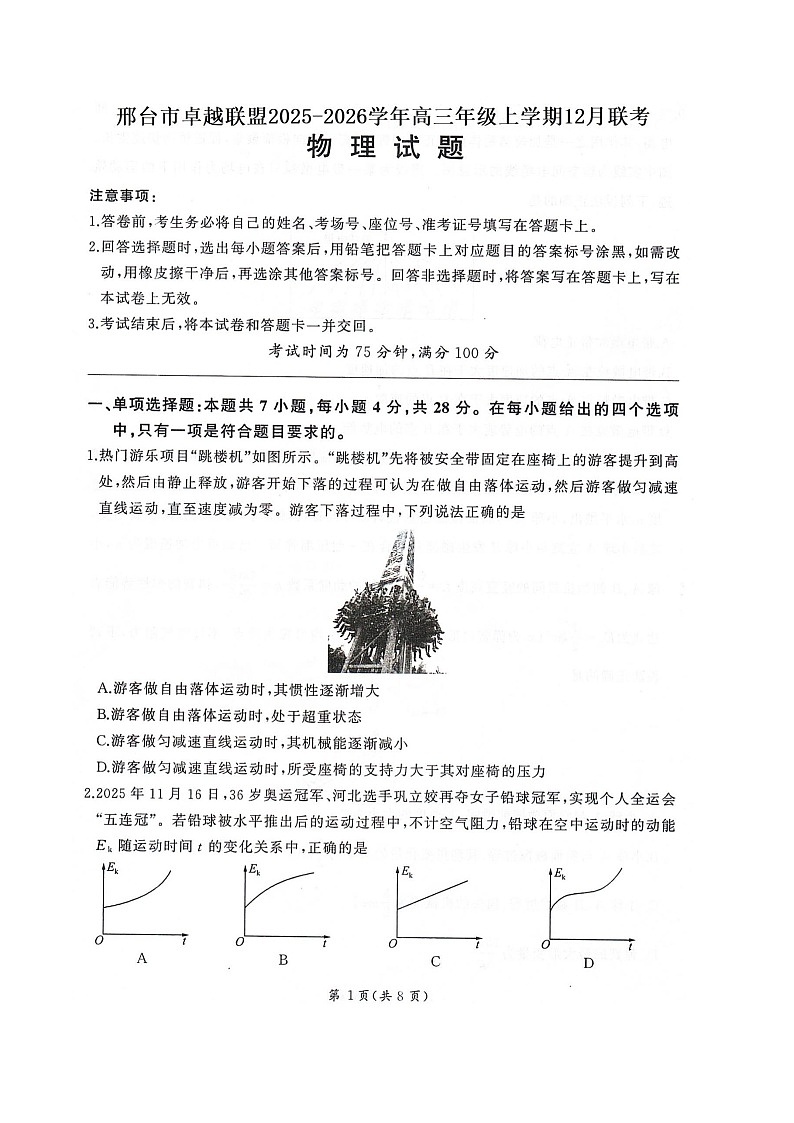 邢台市卓越联盟2025-2026学年高三年级上学期12月联考
物理试题
注意事项:
1.答卷前,考生务必将自己的姓名、考场号、座位号、准考证号填写在答题卡上。
2.回答选择题时,选出每小题答案后,用铅笔把答题卡上对应题目的答案标号涂黑,如需改
动,用橡皮擦干净后,再选涂其他答案标号。回答非选择题时,将答案写在答题卡上,写在
本试卷上无效。
3.考试结束后,将本试卷和答题卡一并交回。
考试时间为75分钟,满分100分
一、单项选择题:本题共7小题,每小题4分,共28分。在每小题给出的四个选项
中,只有一项是符合题目要求的。
1.热门游乐项目“跳楼机”如图所示。“跳楼机”先将被安全带固定在座椅上的游客提升到高
处,然后由静止释放,游客开始下落的过程可认为在做自由落体运动,然后游客做匀减速
直线运动,直至速度减为零。游客下落过程中,下列说法正确的是
A.游客做自由落体运动时,其惯性逐渐增大
B.游客做自由落体运动时,处于超重状态
C.游客做匀减速直线运动时,其机械能逐渐减小
D.游客做匀减速直线运动时,所受座椅的支持力大于其对座椅的压力
2.2025年11月16日,36岁奥运冠军、河北选手巩立姣再夺女子铅球冠军,实现个人全运会
“五连冠”。若铅球被水平推出后的运动过程中,不计空气阻力,铅球在空中运动时的动能
Ek随运动时间t的变化关系中,正确的是
Ek Ek Ek Ek
O t O t O t O t
A B C D
第1页(共8页)